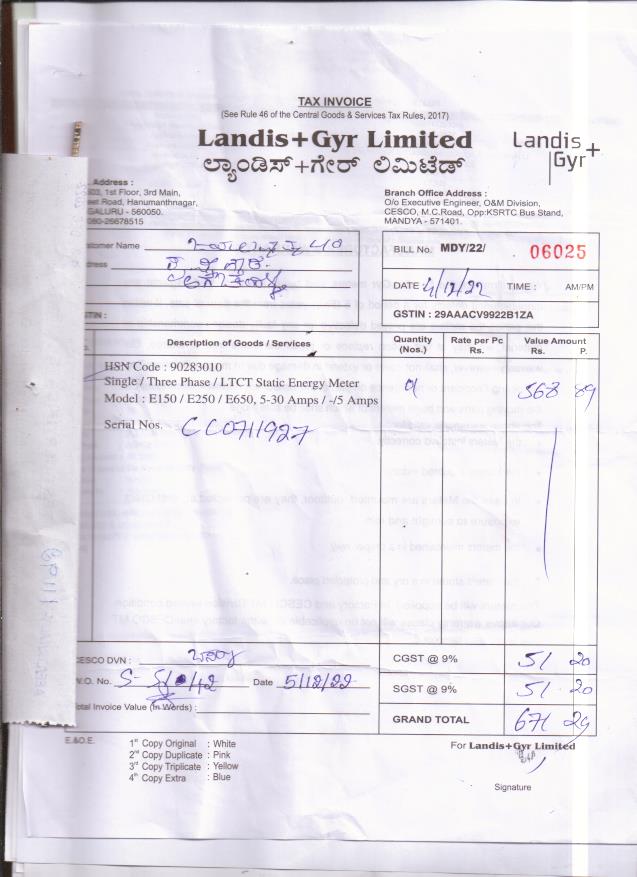 TAX INVOICE
(See Rule 46 of the Central Goods & Services Tax Rules, 2017)
Landis+Gyr Limited
ಲ್ಯಾಂಡಿಸ್+ಗೇರ್ ಲಿಮಿಟೆಡ್
Landis+
Gyr
Address :
1st Floor, 3rd Main,
Road, Hanumanthnagar,
GALURU - 560050.
080-26678515
Branch Office Address :
O/o Executive Engineer, O&M Division,
CESCO, M.C.Road, Opp:KSRTC Bus Stand,
MANDYA - 571401.
stomer Name
dress
STIN :
BILL No. MDY/22/ 06025
DATE 4/12/22 TIME : AM/PM
GSTIN : 29AAACV9922B1ZA
Description of Goods / Services Quantity (Nos.) Rate per Pc Rs. Value Amount Rs. P.
HSN Code : 90283010
Single / Three Phase / LTCT Static Energy Meter
Model : E150 / E250 / E650, 5-30 Amps / -/5 Amps
01 568 89
Serial Nos. CC0711927
CESCO DVN :
CGST @ 9% 51 20
W.O. No. Date 5/12/22
SGST @ 9% 51 20
Total Invoice Value (In Words) :
GRAND TOTAL 671 29
E.&O.E.
1st Copy Original : White
2nd Copy Duplicate : Pink
3rd Copy Triplicate : Yellow
4th Copy Extra : Blue
For Landis+Gyr Limited
Signature